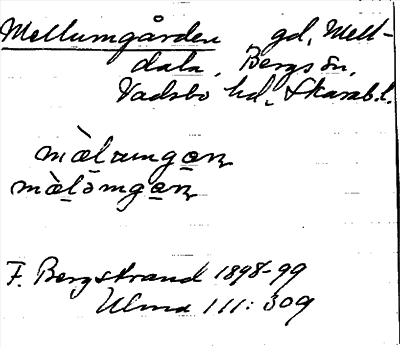 Mellumgården gd, Mell-
dala, Bergs sn,
Vadsbo hd, Skarab.l.
mèlrumgan
mèlomgan
F. Bergstrand 1898-99
Ulma 111:309